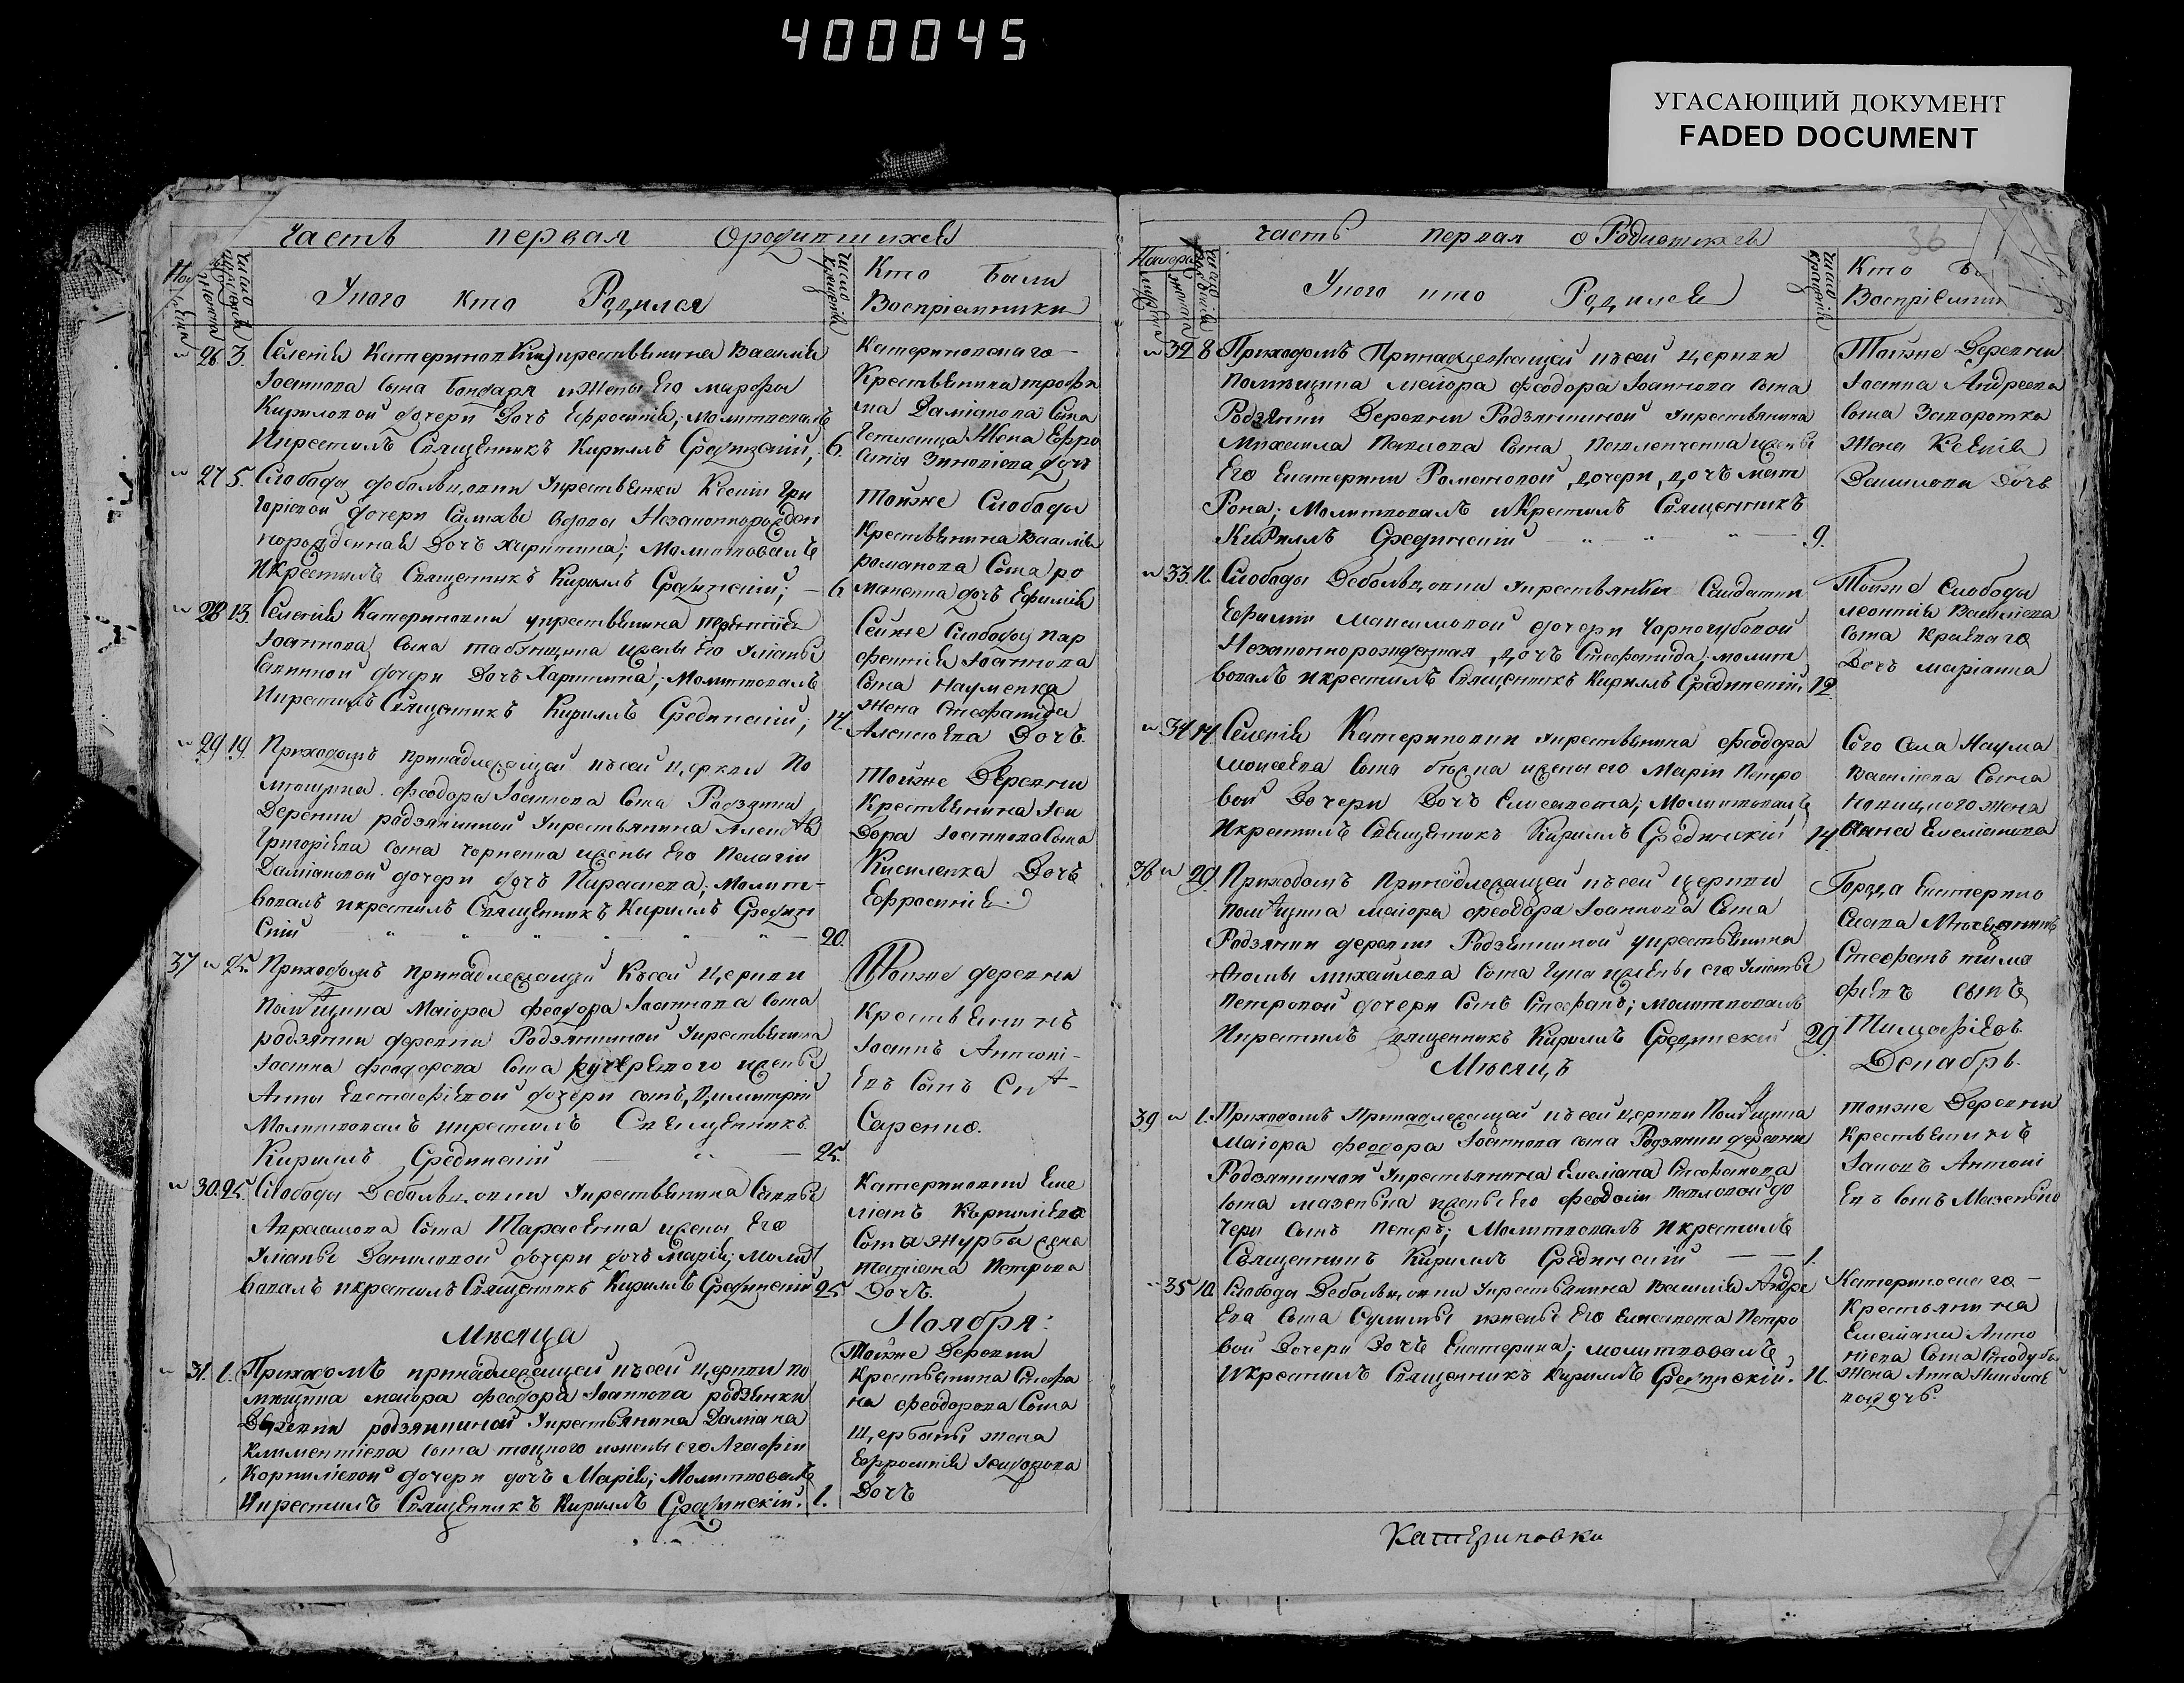 400045
УГАСАЮЩИЙ ДОКУМЕНТ
FADED DOCUMENT
Часть первая о родившихся
У кого кто Родился
Кто были
Воспріемники
26. 3. Селенія Катериновки крестьянина Василія
Іоаннова сына Бондаря и жены Его Марфы
Кириловой дочери Дочь Ефросинія; Молитвовалъ
И крестилъ Священникъ Кириллъ Срединскій; 6.
Катериновскаго
Крестьянина трофи
ма Даміанова Сына
Жена Ефро
синія Зиновіева дочь
27 5. Слободы Дебальцовки крестьянки Ксеніи Гри
горіевой дочери вдовы Незаконнорожден
норожденная Дочь Харитина; Молитвовалъ
И крестилъ Священникъ Кириллъ Срединскій; 6
Тойже Слободы
Крестьянина Василія
романова Сына ро
маненка дочь Ефимія
28 13. Селенія Катериновки крестьянина терентія
Іоаннова Сына жены Его Уліаны
Савиной дочери Дочь Харитина; Молитвовалъ
И крестилъ Священникъ Кириллъ Срединскій; 14
Сейже Слободы пар
фентія Іоаннова
Сына Науменка
Жена Стефанида
Алексіева Дочь.
29 19. Приходомъ принадлежащей къ сей церкви По
мѣщика Феодора Іоаннова Сына Родзянки
Деревни родзянкиной крестьянина Алексѣя
Григоріева сына Чорненка и жены Его Пелагіи
Даміановой дочери дочь Параскева; Молит-
вовалъ и крестилъ Священникъ Кириллъ Средин
скій 20.
Тойже Деревни
Крестьянина Іси
дора Іоаннова Сына
Кисиленка Дочь
Ефросинія
37 25. Приходомъ принадлежащей Къ сей Церкви
Помѣщика Маіора Феодора Іоаннова Сына
родзянки деревни Родзянкиной крестьянина
Іоанна Феодорова Сына и жены
Анны Евстафіевой дочери сынъ, Димитрій
Молитвовалъ и крестилъ Священникъ
Кириллъ Срединскій 25.
Тойже деревни
Крестьянинъ
Іоаннъ Антоні-
евъ Сынъ Снѣ-
Саренко.
30. 25. Слободы Дебальцовки крестьянина Саввы
Авраамова Сына Тарасенка и жены Его
Уліаны Даниловой дочери дочь Марія; Молит
вовалъ и крестилъ Священникъ Кириллъ Срединскій 25
Катериновки Еме
ліанъ Корниліева
Сына журбы жена
татіана Петрова
Дочь.
Мѣсяца Ноября:
31. 1. Приходомъ принадлежащей къ сей церкви по
мѣщика маіора Феодора Іоаннова родзянки
Деревни родзянкиной крестьянина Даміана
Климентіева сына и жены его Агафіи
Корниліевой дочери дочь Марія; Молитвовалъ
И крестилъ Священникъ Кириллъ Срединскій. 1.
Тойже Деревни
Крестьянина Стефа
на Феодорова Сына
Щербаны жена
Ефросинія Ісидорова
Дочь
Часть первая о Родившихся
36
У кого кто Родился
Кто
Воспріемни
32 8 Приходомъ Принадлежащей къ сей церкви
Помѣщика маіора Феодора Іоаннова Сына
Родзянки Деревни Родзянкиной крестьянина
Михаила Павлова Сына Павленченка и жены
Его Екатерины Романовой дочери, дочь мат
рона; Молитвовалъ и Крестилъ Священникъ
Кириллъ Срединскій 9.
Тойже Деревни
Іоанна Андреева
Сына Запоротка
Жена Ксенія
Данилова дочь
33. 11. Слободы Дебальцовки крестьянки Солдатки
Ефиміи Максимовой дочери Чорногубовой
Незаконнорожденная дочь Стефанида; молит
вовалъ и крестилъ Священникъ Кириллъ Срединскій. 12
Тойже Слободы
леонтія Васильева
Сына
Дочь маріанна
34 14 Селенія Катериновки крестьянина Феодора
моисеева Сына и жены его Маріи Петро
вой Дочери Дочь Елисавета; Молитвовалъ
И крестилъ Священникъ Кириллъ Срединскій 14
Сего села Наума
Василіева Сына
жена
Анна Емеліанова
38 29 Приходомъ Принадлежащей къ сей церкви
помѣщика маіора феодора Іоаннова Сына
Родзянки деревни Родзянкиной крестьянина
Фомы михайлова Сына и жены его Уліаны
Петровой дочери Сынъ Стефанъ; молитвовалъ
И крестилъ Священникъ Кириллъ Срединскій 29
Города Екатерино
Слава Мѣщанинъ
Стефанъ тимо
фѣевъ сынъ
Тимофѣевъ
Мѣсяцъ Декабрь.
39 1. Приходомъ Принадлежащей къ сей церкви Помѣщика
Маіора Феодора Іоаннова сына Родзянки деревни
Родзянкиной крестьянина Емеліана Стефанова
Сына мазепына и жены Его Феодосіи Павловой до
чери Сынъ Петръ; Молитвовалъ И крестилъ
Священникъ Кириллъ Срединскій 1.
тойже Деревни
Крестьянинъ
Іаковъ Антоні
евъ Сынъ
35 10. Слободы Дебальцовки крестьянина Василія Андре
ева Сына Сулимы и жены Его Елисавета Петро
вой Дочери Дочь Екатерина; молитвовалъ
И крестилъ Священникъ Кириллъ Срединскій. 11.
Катериновскаго
крестьянина
Емеліана Анто
ніева Сына
Жена Анна
дочь.
Катериновки